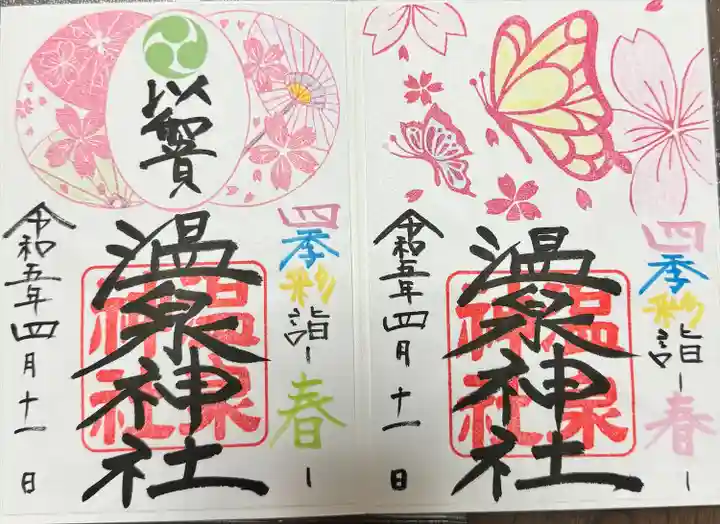 四季彩詣-春-
温泉神社
温泉
神社
令和五年四月十一日
四季彩詣-春-
温泉神社
温泉
神社
令和五年四月十一日